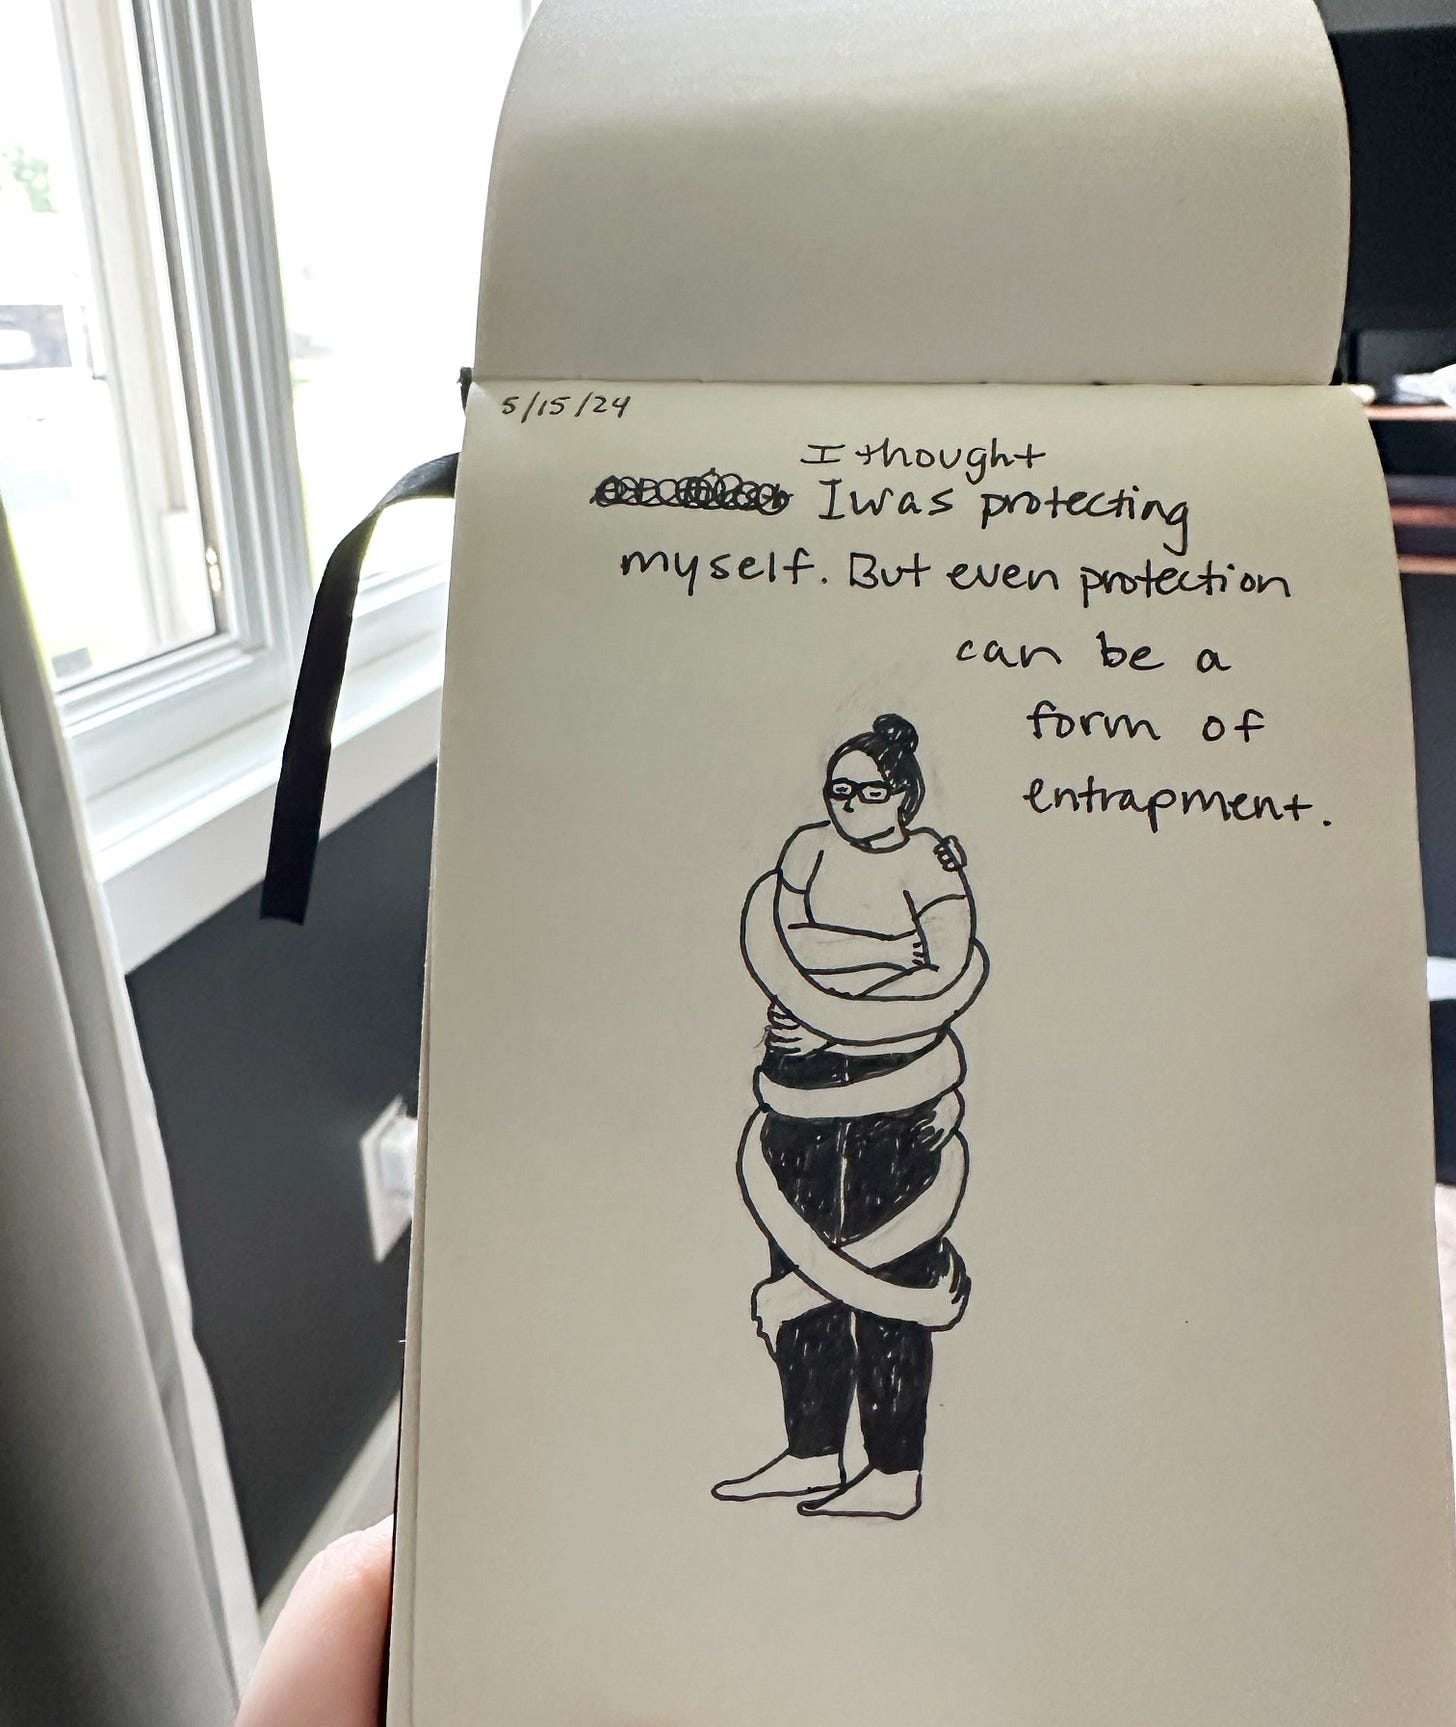 5/15/24
I thought
I was protecting
myself. But even protection
can be a
form of
entrapment.